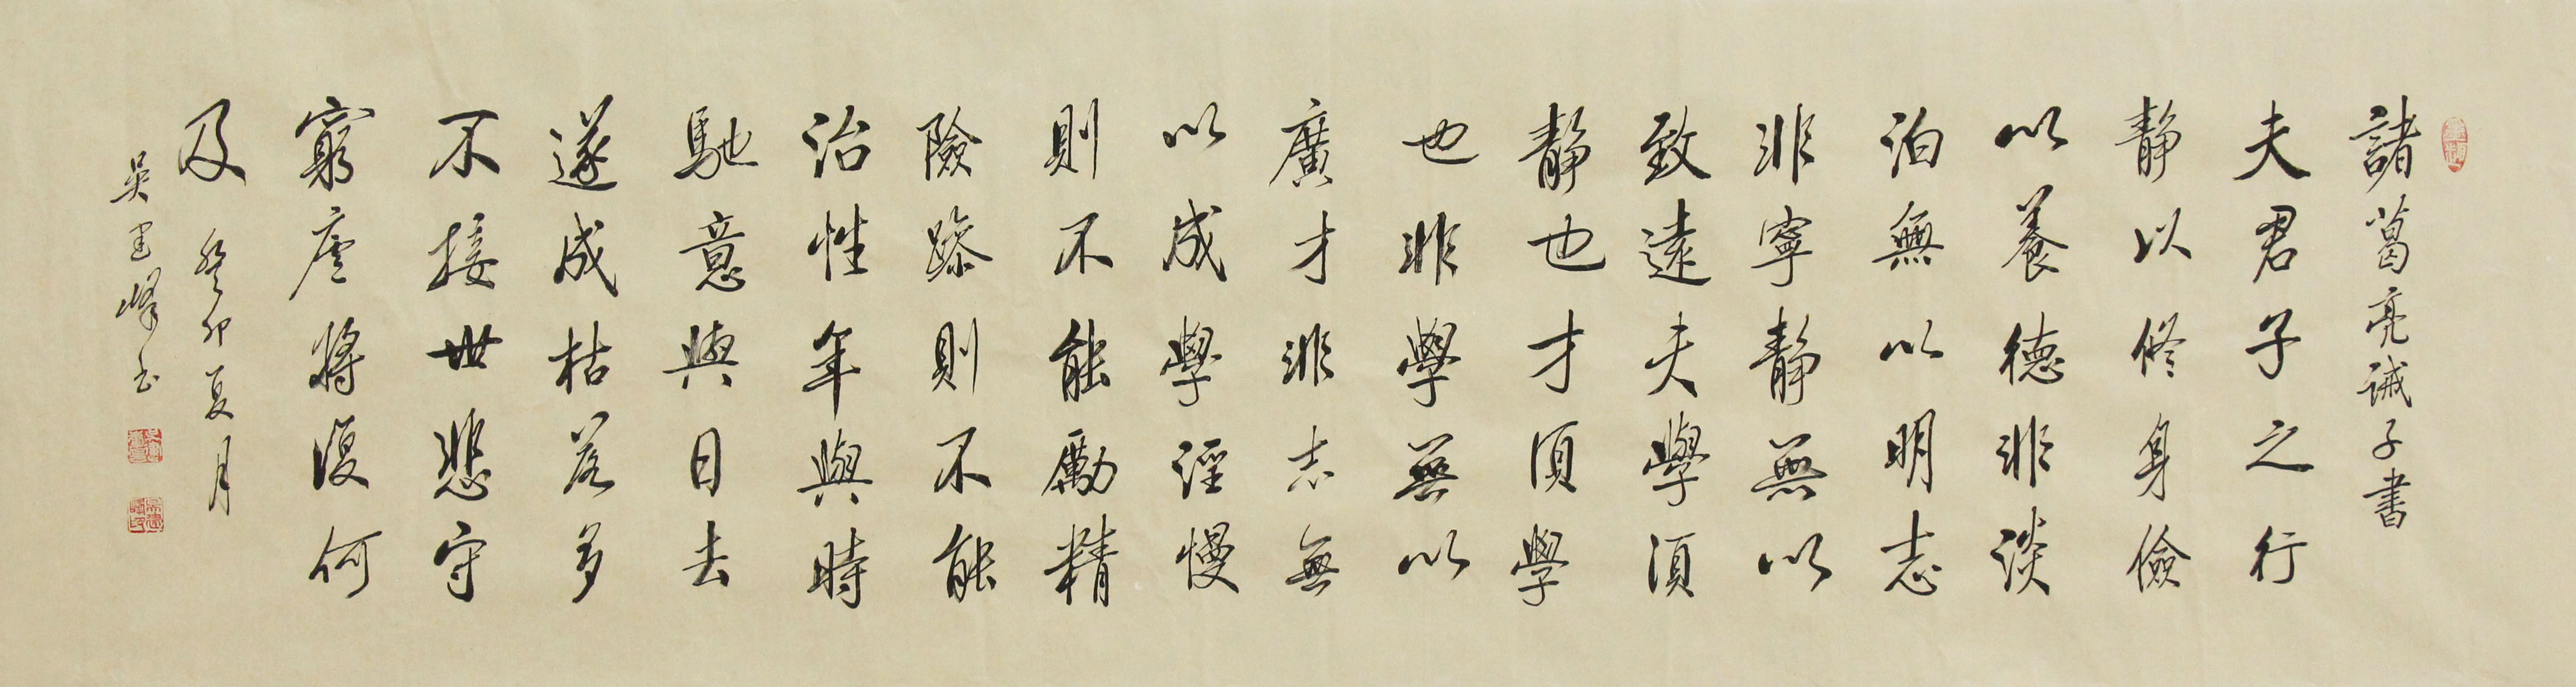 諸葛亮誡子書
夫君子之行
靜以修身儉
以養德非淡
泊無以明志
非寧靜無以
致遠夫學須
靜也才須學
也非學無以
廣才非志無
以成學淫慢
則不能勵精
險躁則不能
治性年與時
馳意與日去
遂成枯落多
不接世悲守
窮廬將復何
及
癸卯夏月
吳里峰书